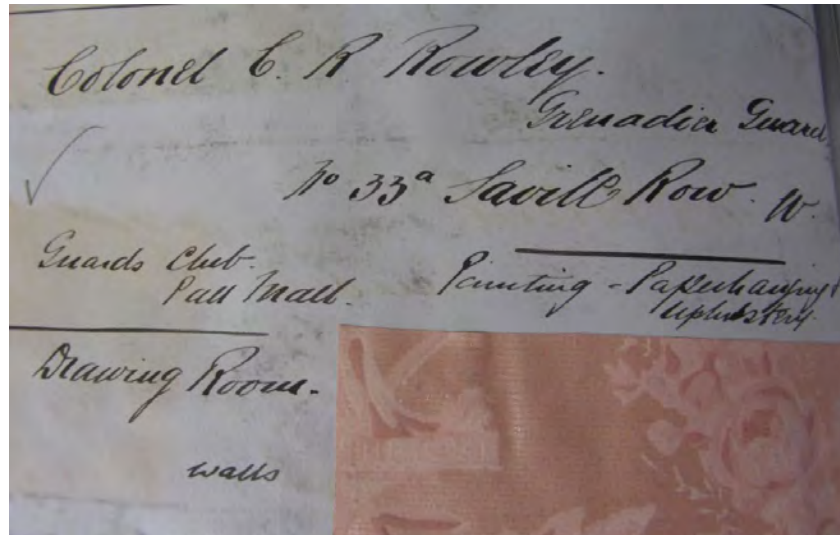 Colonel C. R Rowley.
Grenadier Guard
No 33a Savill Row. W.
Guards Club.
Pall Mall.
Painting - Paperhanging
Upholstery.
Drawing Room.
walls